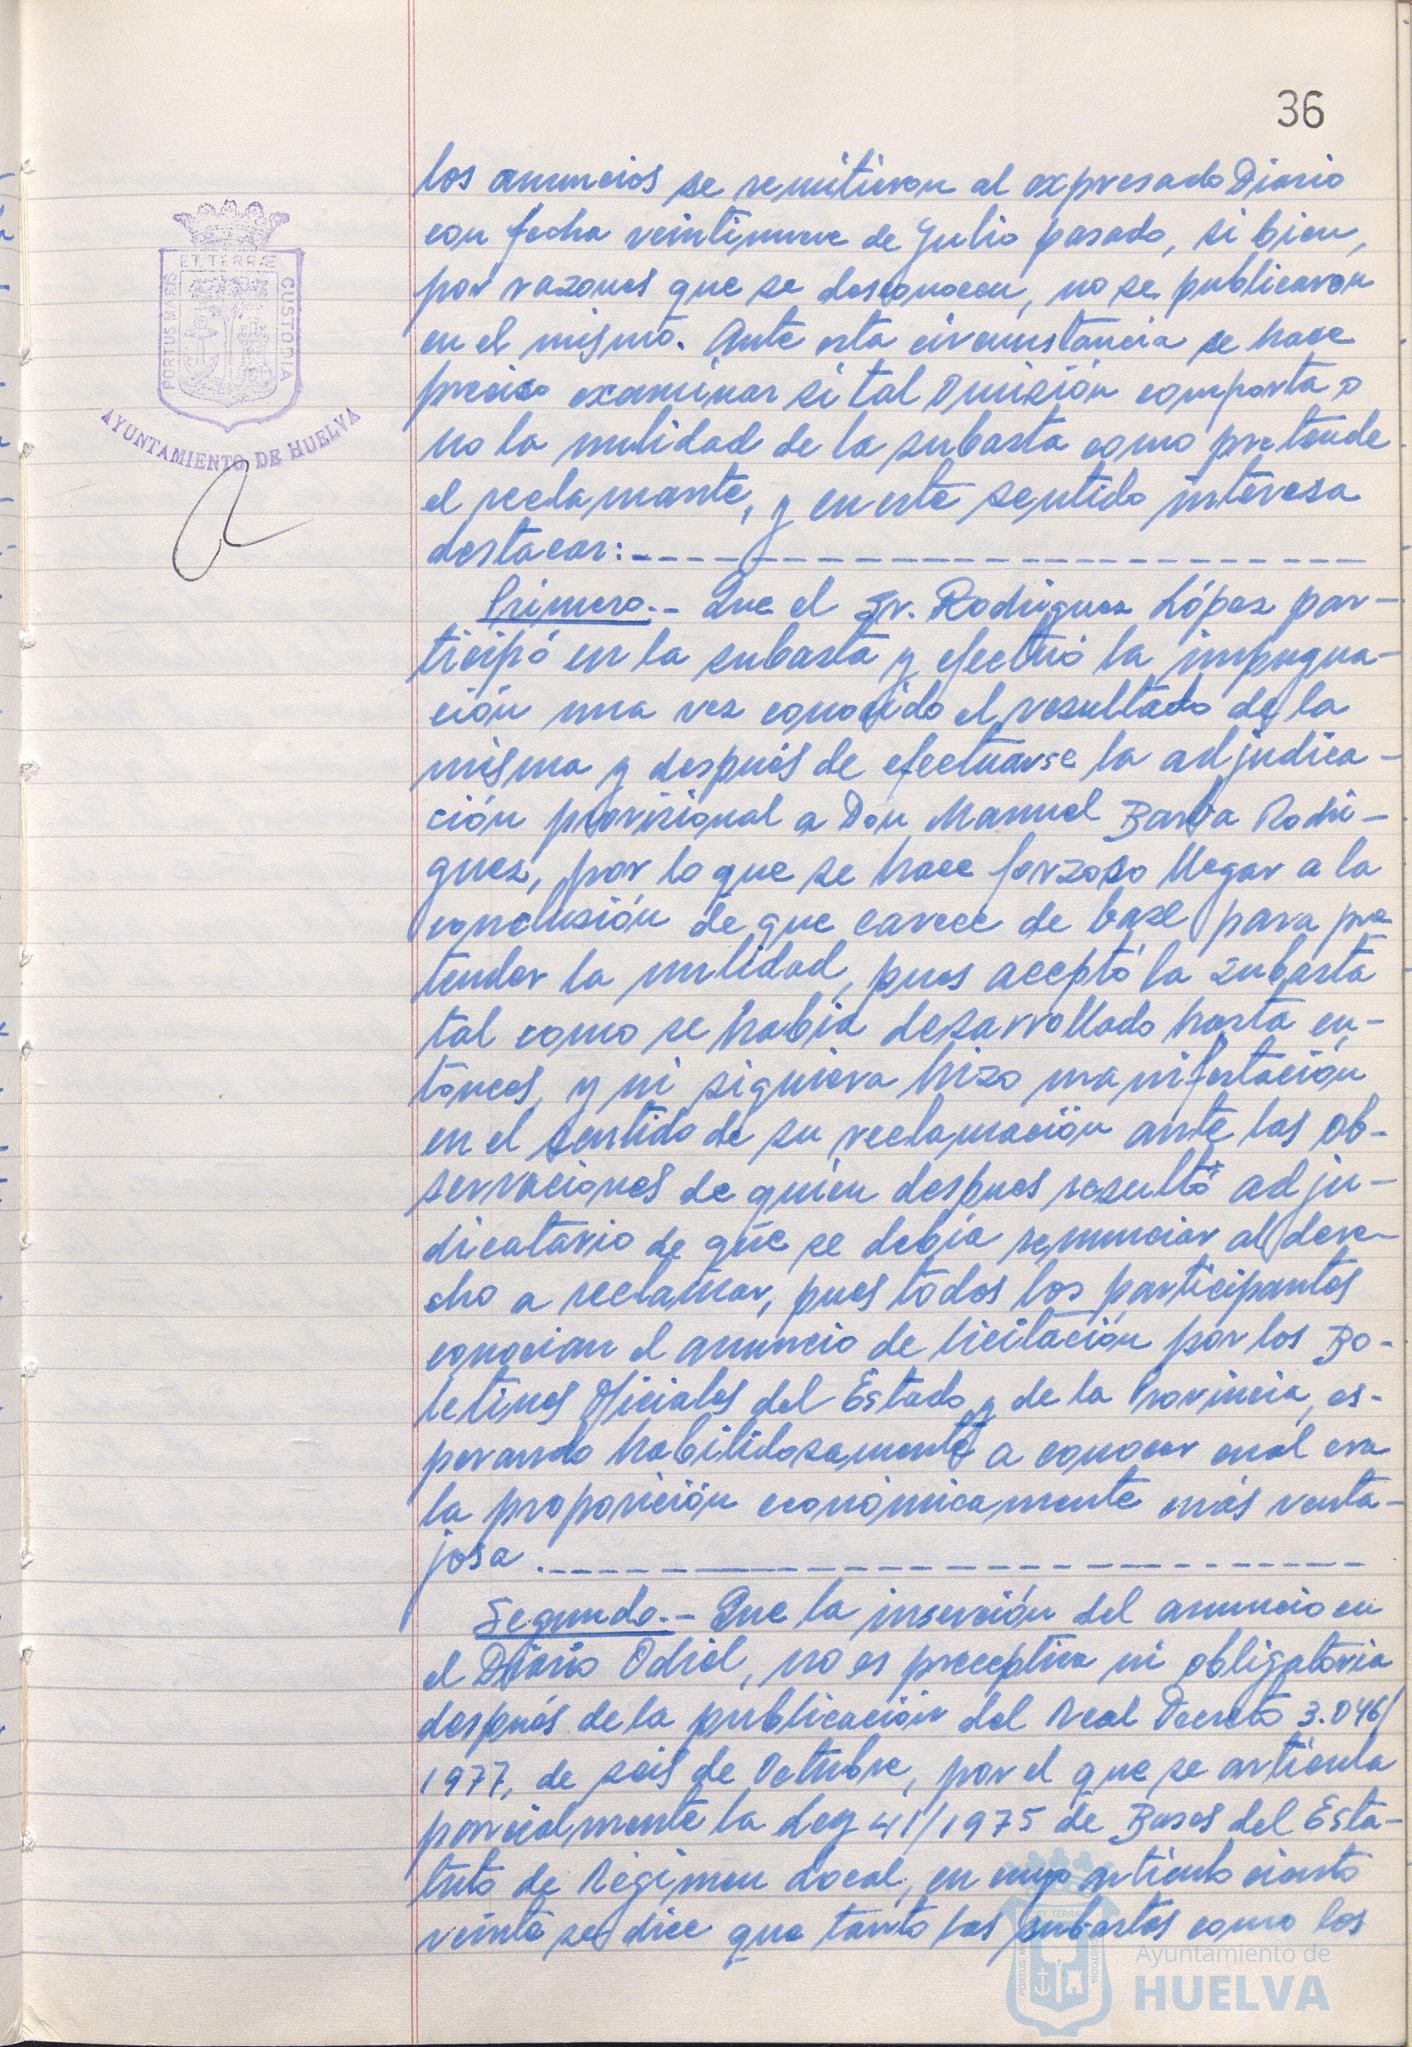 36
los anuncios se remitieron al expresado Diario
con fecha veintinueve de Julio pasado, si bien,
por razones que se desconocen, no se publicaron
en el mismo. Ante esta circunstancia se hace
preciso examinar si tal omisión comporta o
no la nulidad de la subasta como pretende
el reclamante, y en este sentido interesa
destacar:
Primero.- Que el Sr. Rodriguez López par-
ticipó en la subasta y efectuó la impugna-
ción una vez conocido el resultado de la
misma y después de efectuarse la adjudica-
ción provisional a Don Manuel Barba Rodri-
guez, por lo que se hace forzoso llegar a la
conclusión de que carece de base para pre
tender la nulidad, pues aceptó la subasta
tal como se habia desarrollado hasta en-
tonces, y ni siquiera hizo manifestación
en el sentido de su reclamación ante las ob-
servaciones de quien despues resultó adju-
dicatario de que se debia renunciar al dere-
cho a reclamar, pues todos los participantes
conocian el anuncio de licitación por los Bo-
letines Oficiales del Estado y de la Provincia, es-
perando habilidosamente a conocer cual era
la proposición económicamente más venta-
josa.
Segundo.- Que la inserción del anuncio en
el Diario Odiel, no es preceptiva ni obligatoria
después de la publicación del Real Decreto 3.046/
1977, de seis de Octubre, por el que se articula
parcialmente la Ley 41/1975 de Bases del Esta-
tuto de Régimen Local, en cuyo articulo ciento
veinte se dice que tanto las subastas como los
PORTUS MARIS ET TERRÆ CUSTODIA
AYUNTAMIENTO DE HUELVA
Ayuntamiento de
HUELVA